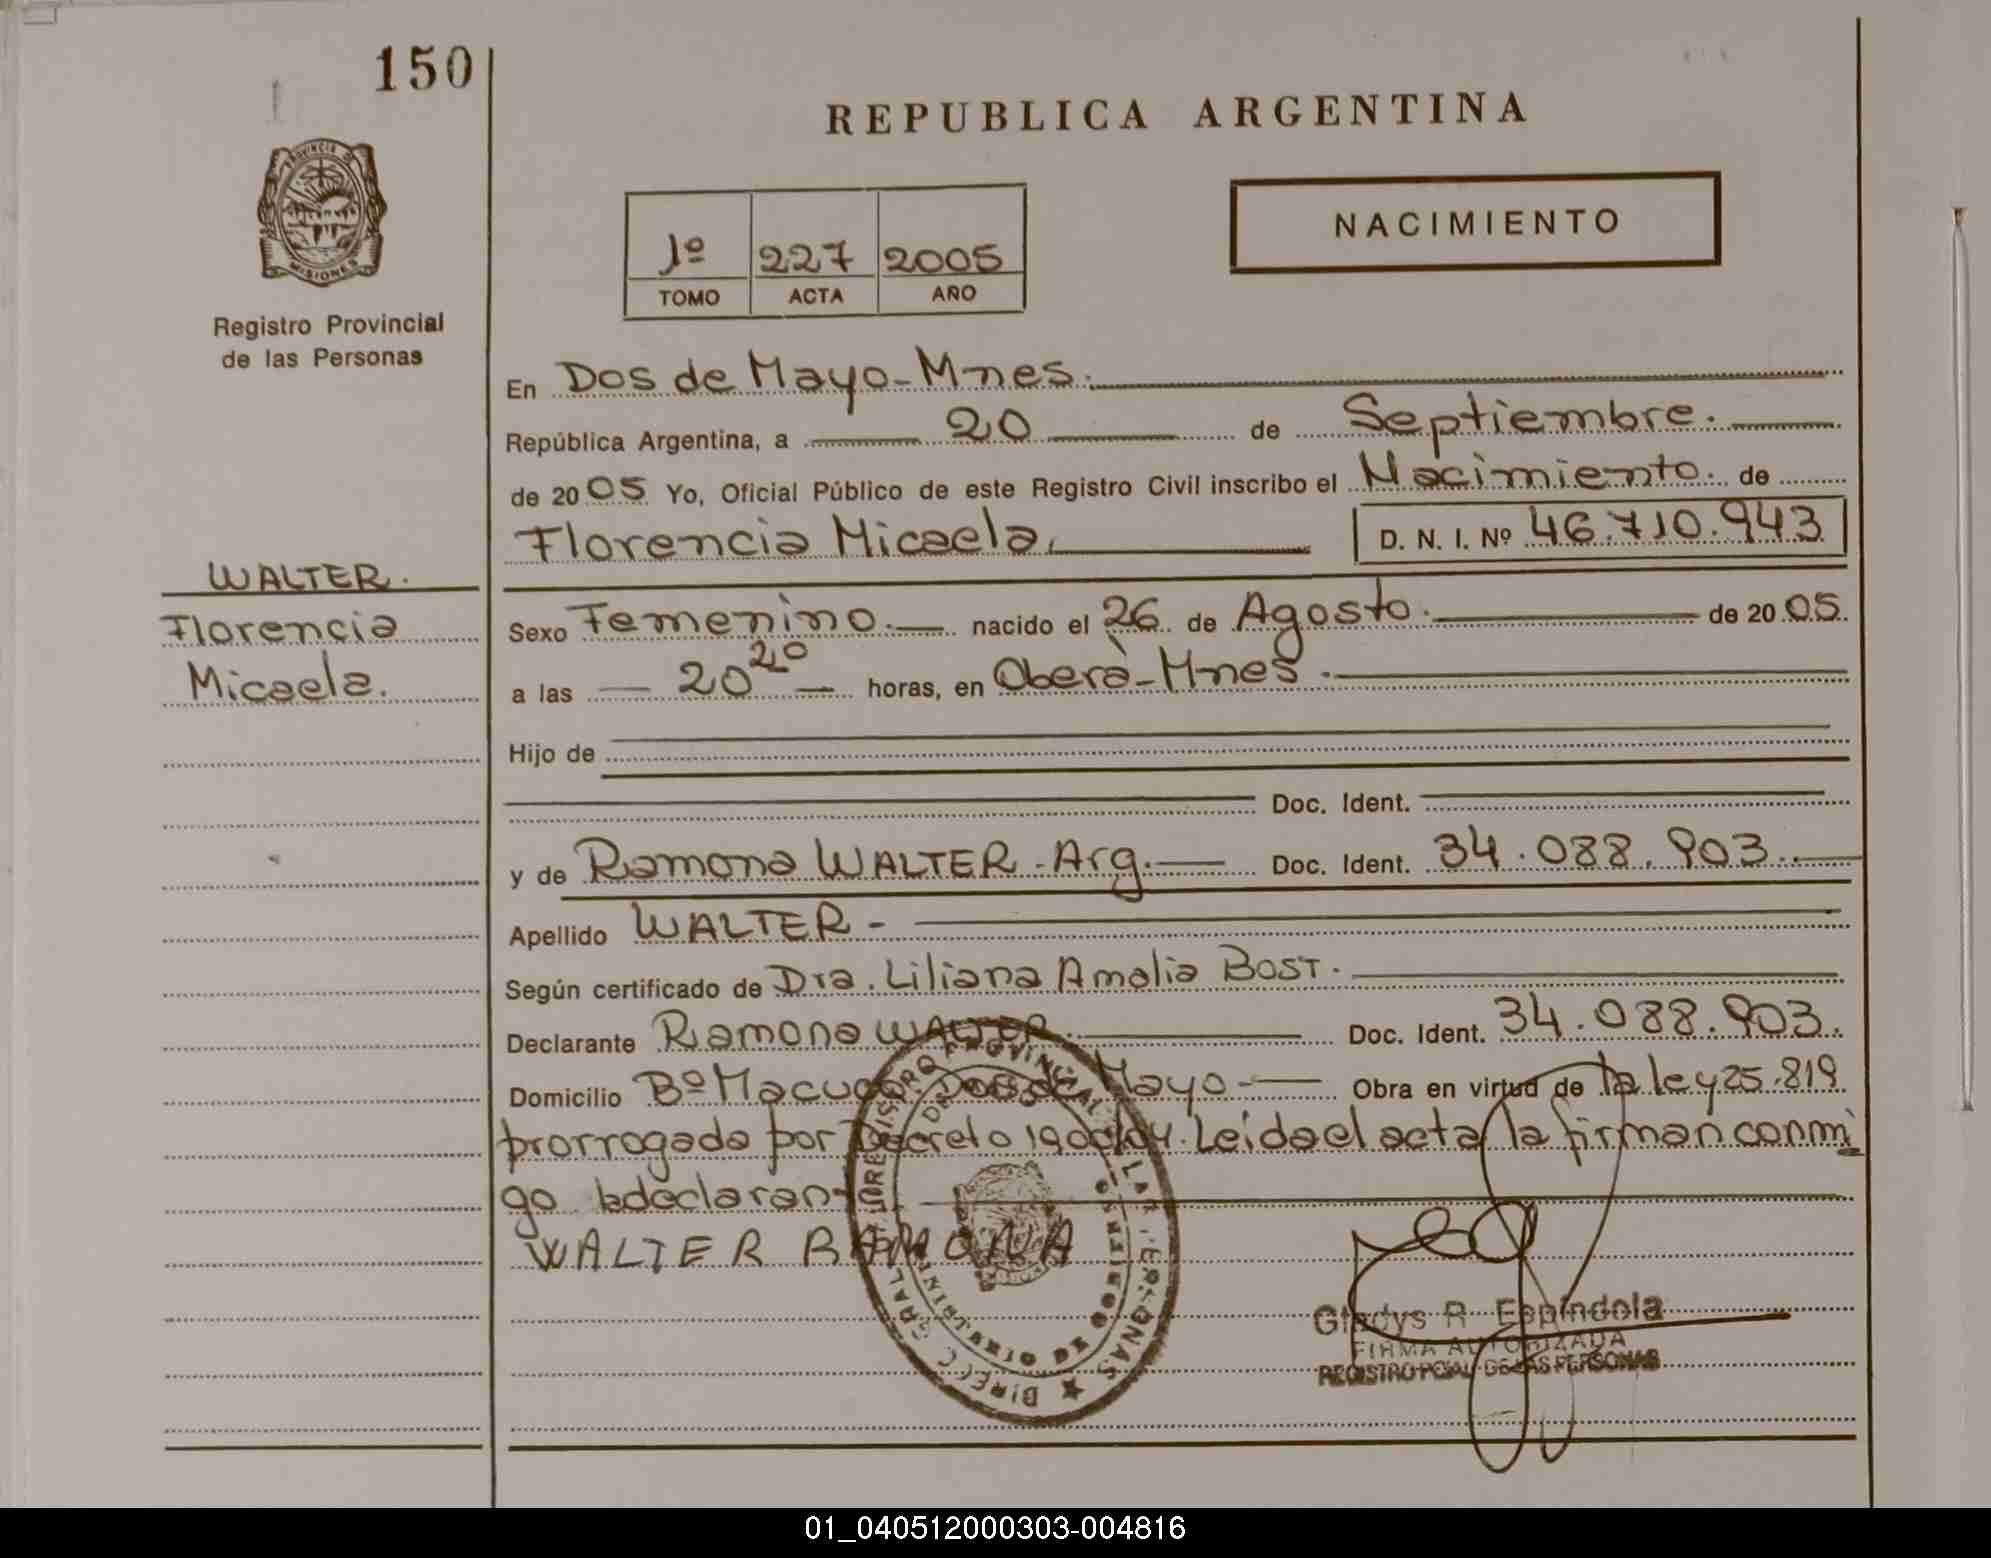 150
REPUBLICA ARGENTINA
PROVINCIA DE
MISIONES
Registro Provincial
de las Personas
NACIMIENTO
1º 227 2005
TOMO ACTA AÑO
En Dos de Mayo-Mnes.
República Argentina, a 20 de Septiembre.
de 2005 Yo, Oficial Público de este Registro Civil inscribo el Nacimiento. de
Florencia Micaela. D. N. I. Nº 46.710.943
WALTER.
Florencia
Micaela.
Sexo Femenino. nacido el 26 de Agosto. de 2005.
a las 20 20 horas, en Oberà-Mnes.
Hijo de
Doc. Ident.
y de Ramona WALTER-Arg. Doc. Ident. 34.088.903.
Apellido WALTER-
Según certificado de Dra. Liliana Amalia BOST.
Declarante Ramona WALTER. Doc. Ident. 34.088.903.
Domicilio Bº Macuco. Dos de Mayo- Obra en virtud de la ley 25.819
prorrogada por Decreto 1900/04. Leida el acta la firman conmi
go la declarant
WALTER RAMONA
Gladys R. Espíndola
FIRMA AUTORIZADA
REGISTRO PCIAL. DE LAS PERSONAS
01_040512000303-004816